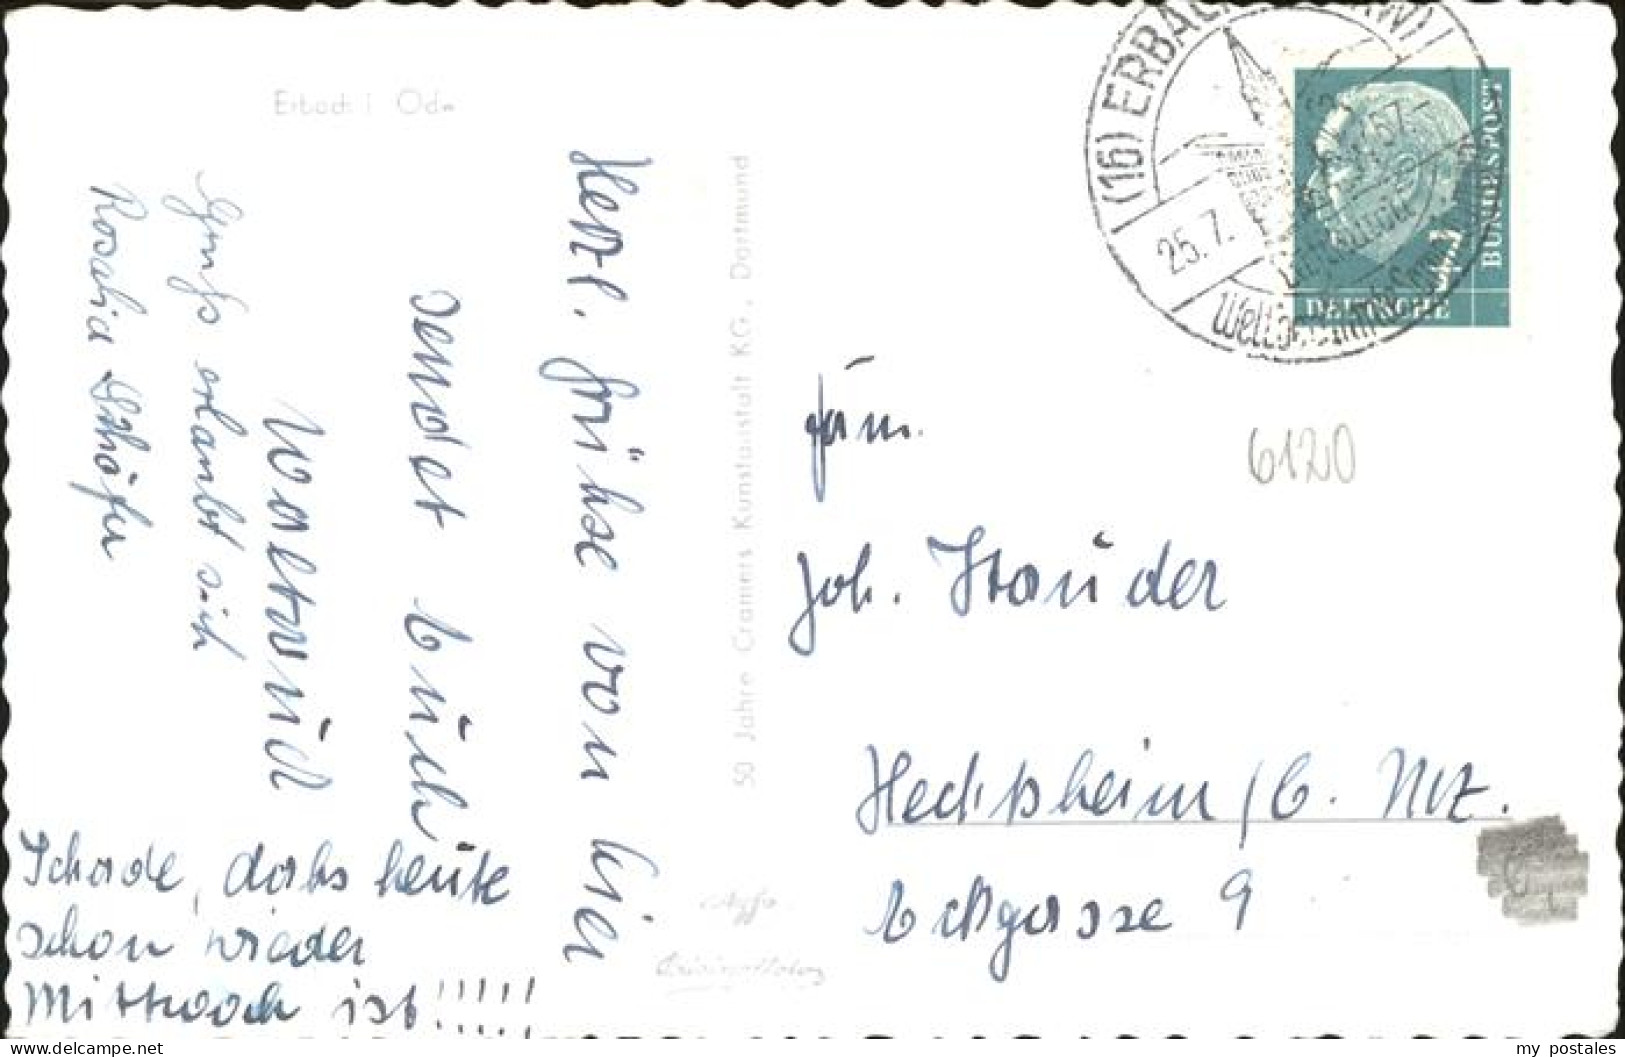 Erbach i Odw
Herzl. Grüße von hier
sendet Euch
Waltraud
Gruß erlaubt sich
Rosalia Schäfer
Schade, dahs heute
schon wieder
Mittwoch ist!!!!!
50 Jahre Cramers Kunstanstalt KG, Dortmund
Agfa
(16) ERBACH
25.7.
57
DEUTSCHE
BUNDESPOST
Fam.
6120
Joh. Stauder
Hechtsheim / b. Mz.
Eckgasse 9
www.delcampe.net
my_postales